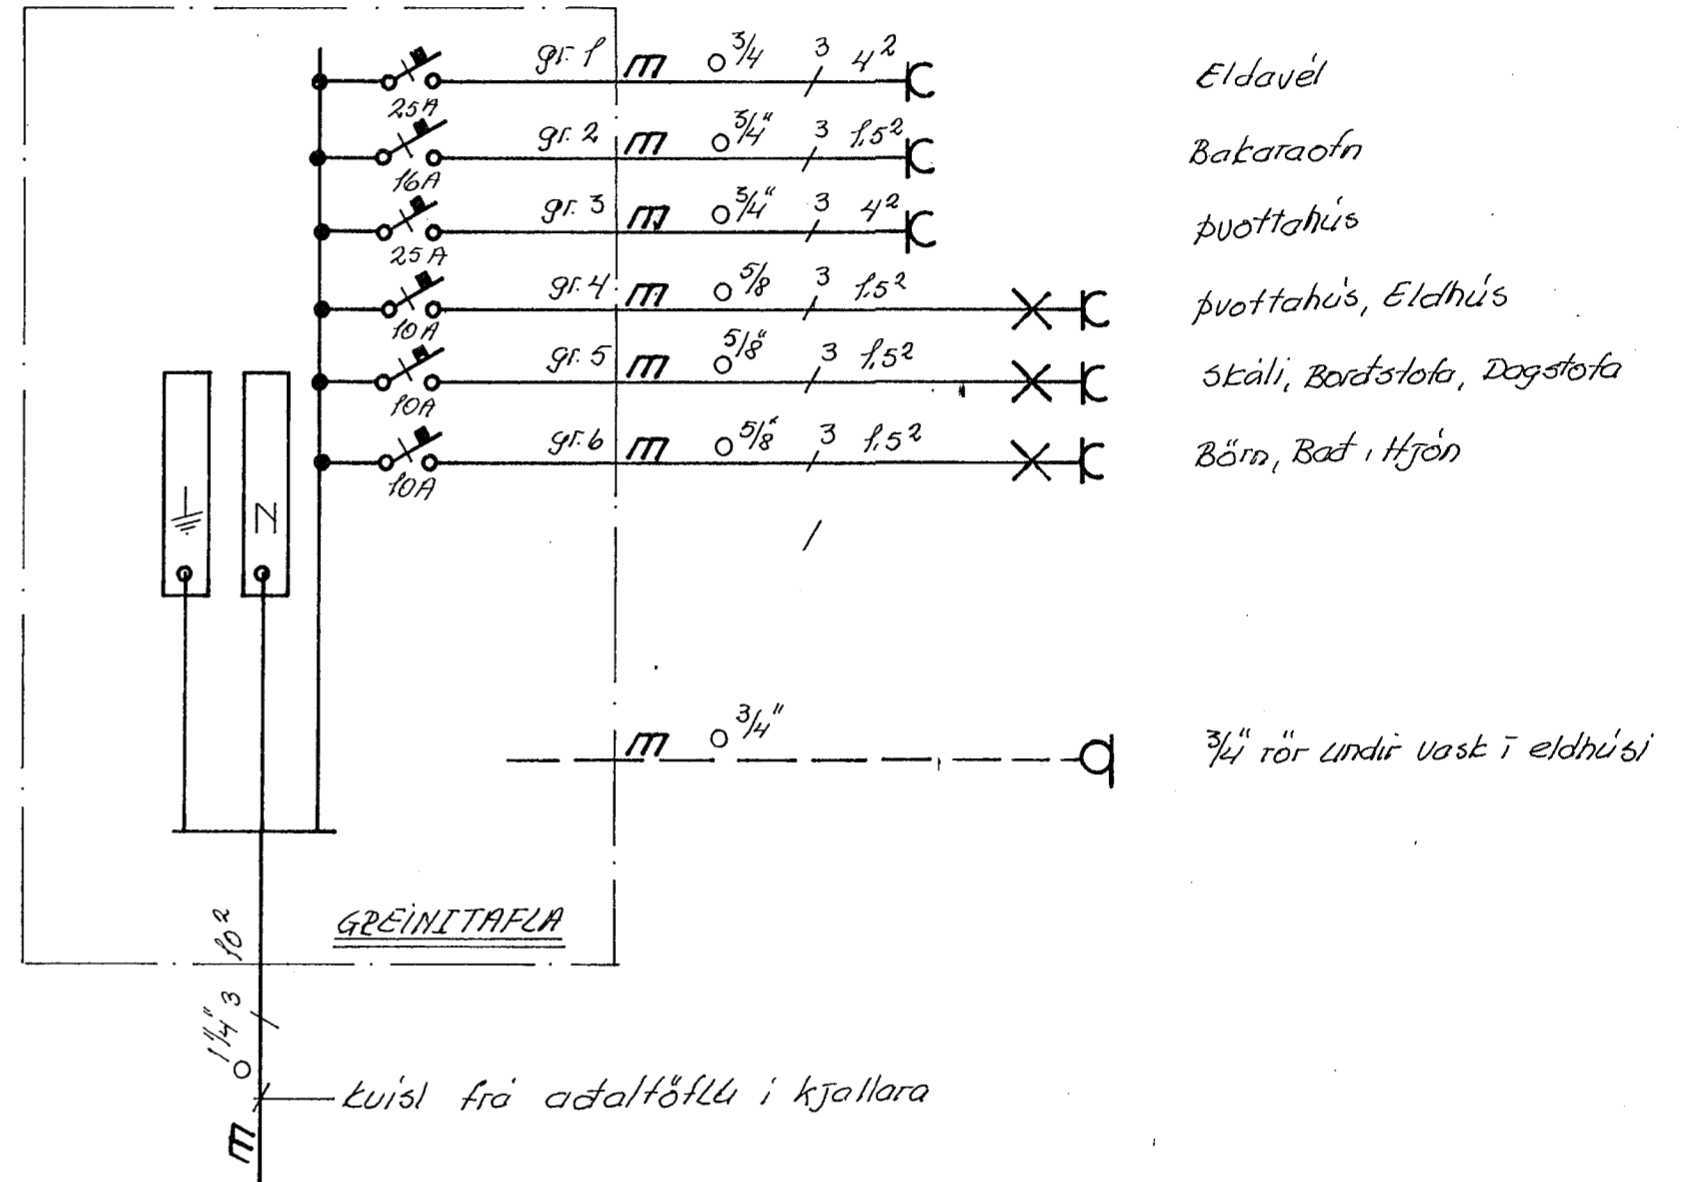 gr. 1 m 3/4 3 4² Eldavél
25A
gr. 2 m 3/4" 3 1,5² Bakaraofn
16A
gr. 3 m 3/4" 3 4² Þvottahús
25A
gr. 4 m 5/8 3 1,5² Þvottahús, Eldhús
10A
gr. 5 m 5/8" 3 1,5² Skáli, Borðstofa, Dagstofa
10A
gr. 6 m 5/8" 3 1,5² Börn, Bað, Hjón
10A
N
m 3/4" 3/4" rör undir vask í eldhúsi
GREINITAFLA
m 1 1/4" 3 10²
kvísl frá aðaltöflu í kjallara